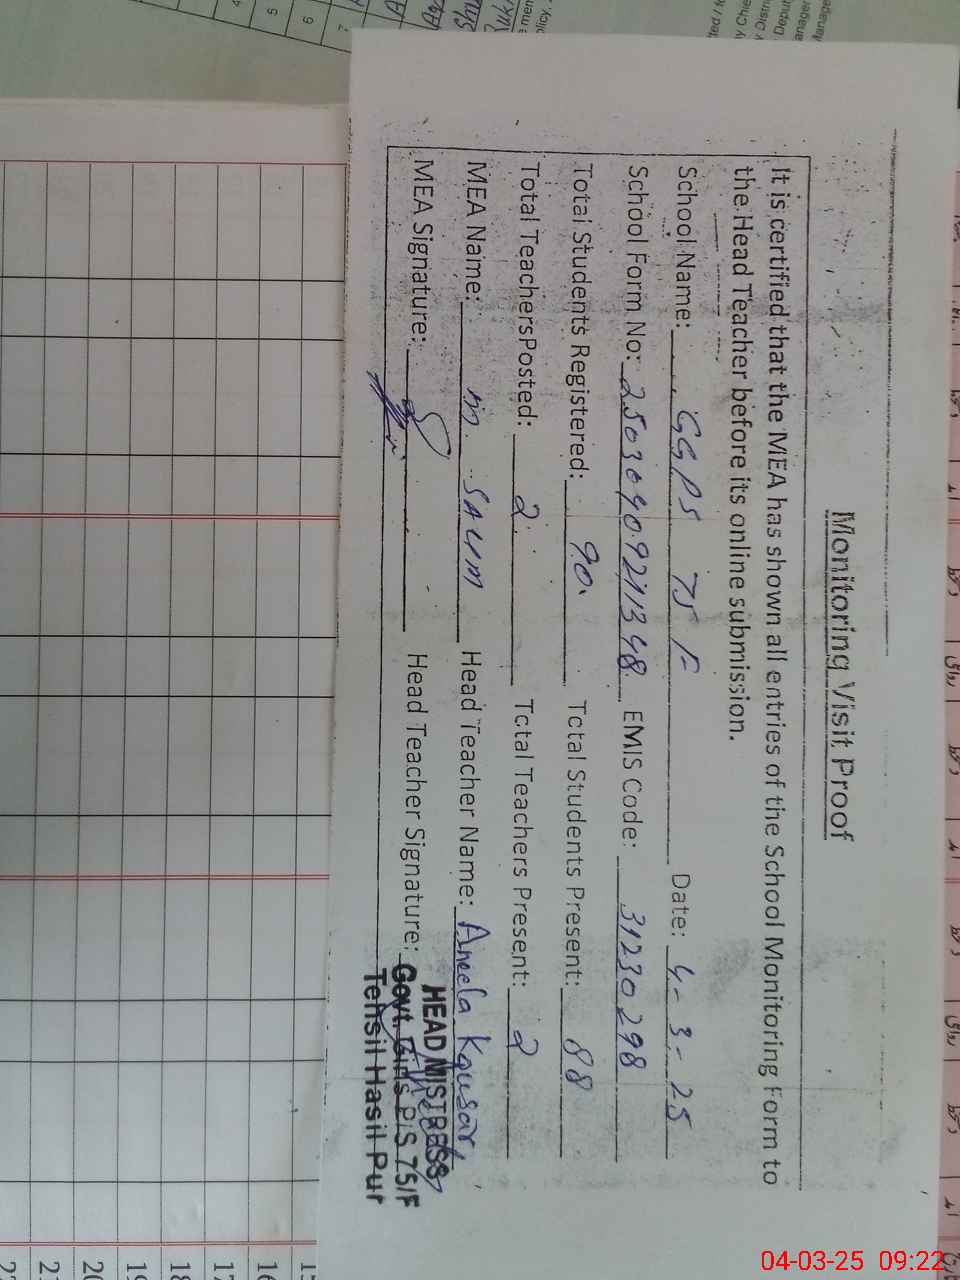 Monitoring Visit Proof
It is certified that the MEA has shown all entries of the School Monitoring Form to
the Head Teacher before its online submission.
School Name: GGPS 75 F Date: 4-3-25
School Form No: EMIS Code: 31230298
Total Students Registered: 90 Total Students Present: 88
Total Teachers Posted: 2 Total Teachers Present: 2
MEA Name: M SALIM Head Teacher Name: Aneela Kousar
MEA Signature: Head Teacher Signature:
HEAD MISTRESS
Govt. Girls P/S 75/F
Tehsil Hasil Pur
15
16
17
18
19
20
21
22
4
5
6
7
04-03-25 09:22